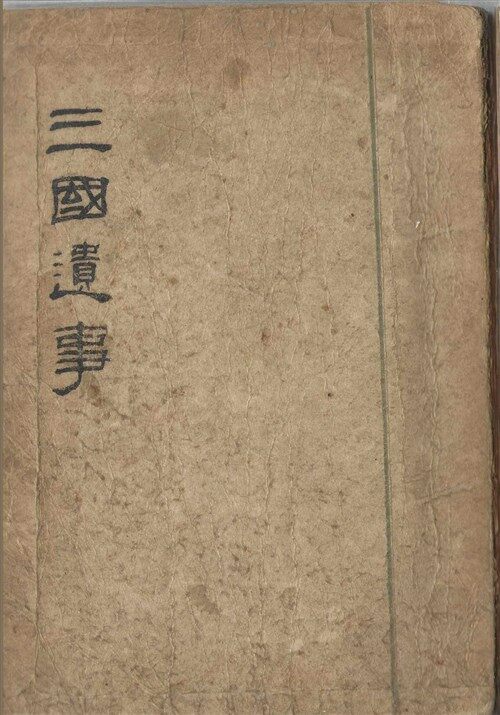 三國遺事